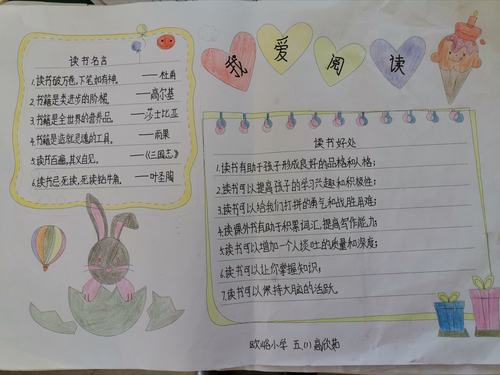 我爱阅读
读书名言
1.读书破万卷,下笔如有神。——杜甫
2.书籍是类进步的阶梯。——高尔基
3.书籍是全世界的营养品。——莎士比亚
4.书籍是造就灵魂的工具。——雨果
5.读书百遍,其义自见。——《三国志》
6.读书忌死读,死读钻牛角。——叶圣陶
读书好处
1.读书有助于孩子形成良好的品格和人格;
2.读书可以提高孩子的学习兴趣和积极性;
3.读书可以给我们打拼的勇气和战胜困难;
4.读课外书有助于积累词汇,提高写作能力;
5.读书可以增加一个人谈吐的质量和深度;
6.读书可以让你掌握知识;
7.读书可以保持大脑的活跃。
小学 五.(1)高欣茹